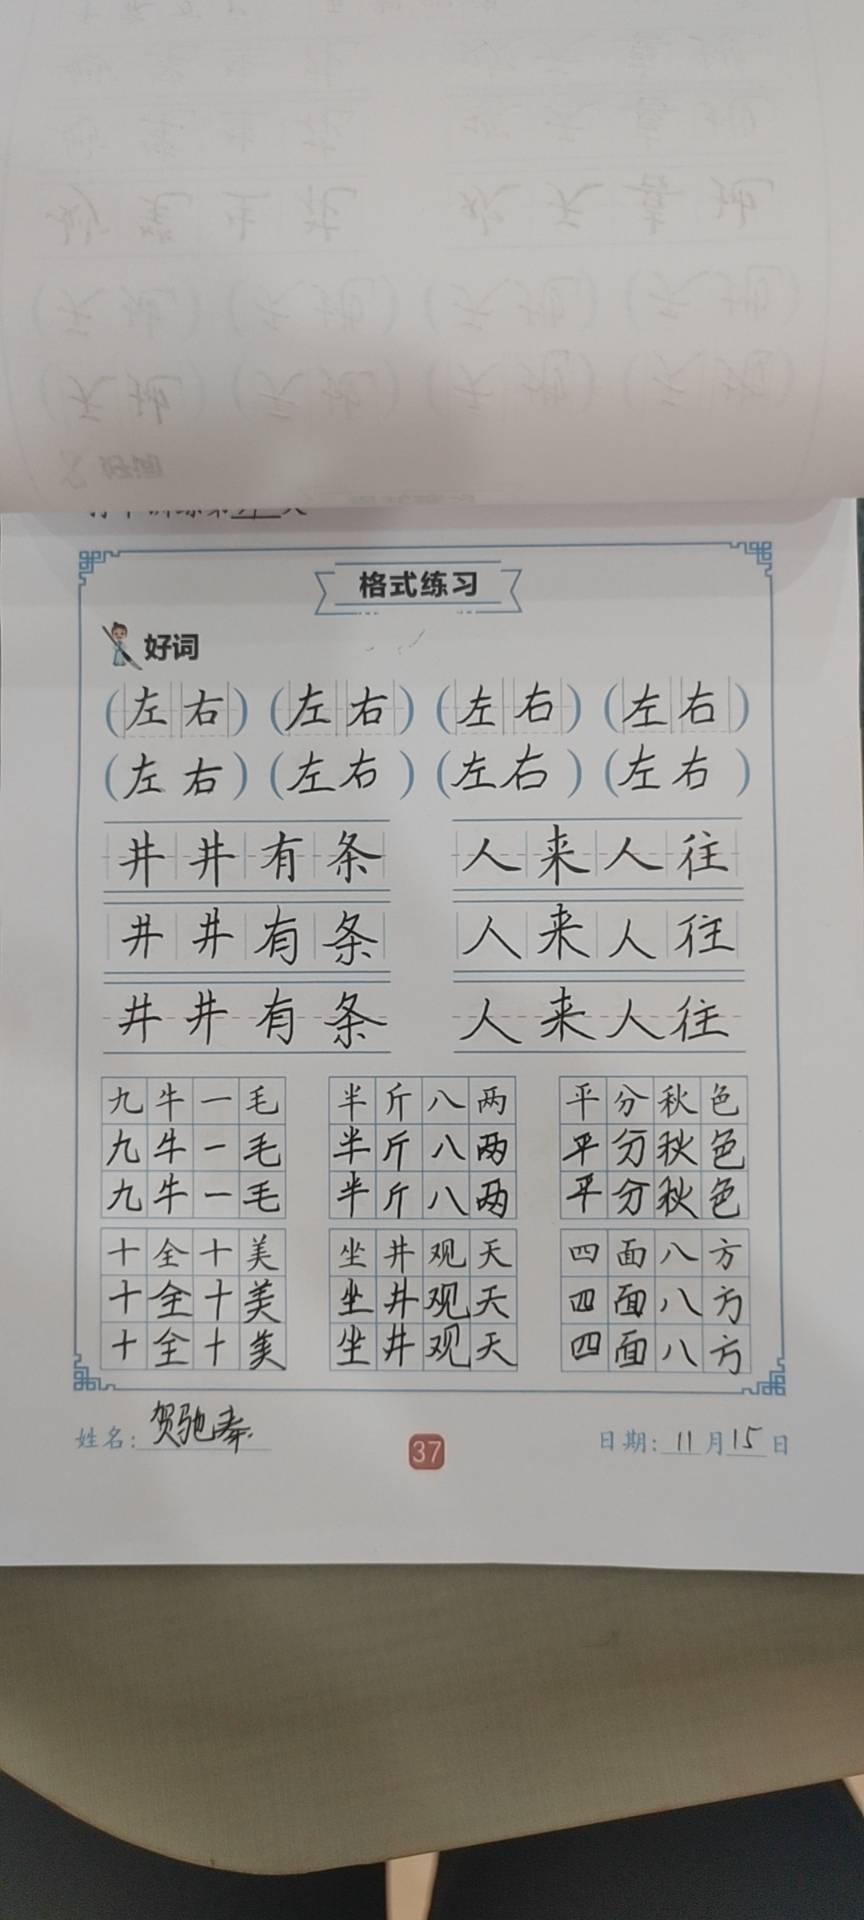 格式练习
好词
(左右)(左右)(左右)(左右)
(左右)(左右)(左右)(左右)
井井有条 人来人往
井井有条 人来人往
井井有条 人来人往
九牛一毛 半斤八两 平分秋色
九牛一毛 半斤八两 平分秋色
九牛一毛 半斤八两 平分秋色
十全十美 坐井观天 四面八方
十全十美 坐井观天 四面八方
十全十美 坐井观天 四面八方
姓名: 贺驰 37 日期: 11月15日